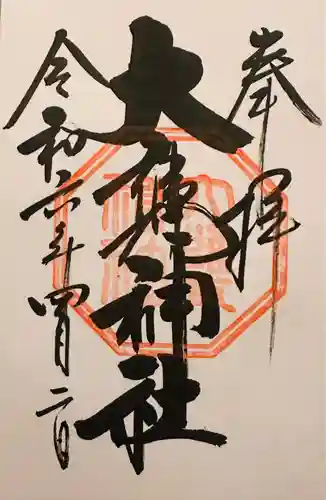 奉拝
大縣神社
令和六年四月二日